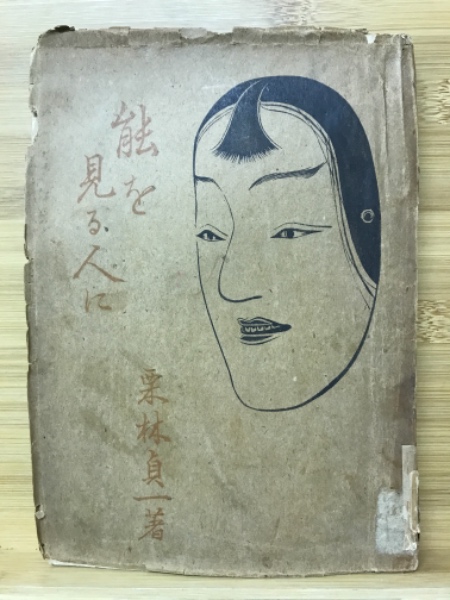 能を
見る人に
栗林貞一著